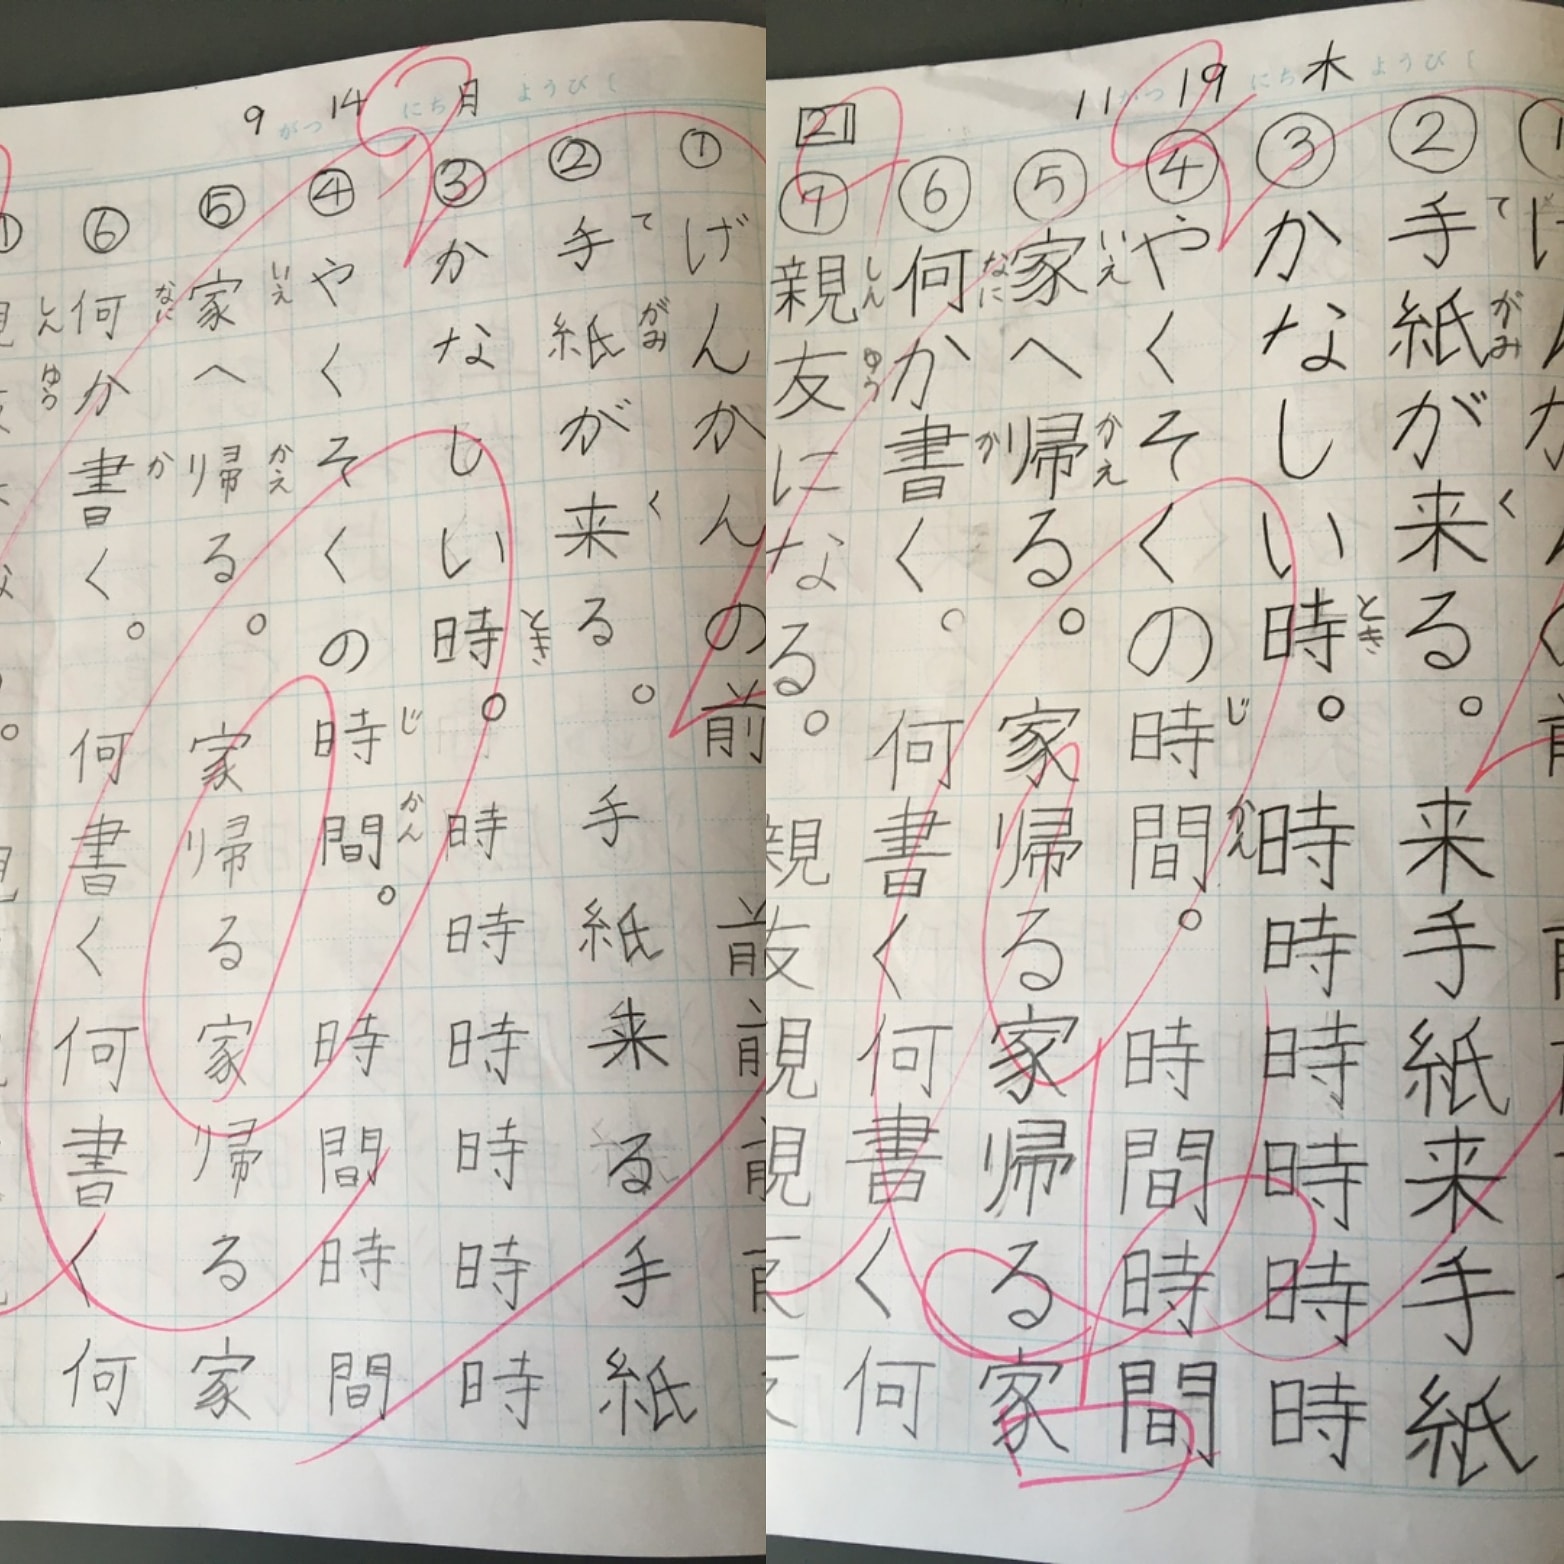 9 がつ 14 にち 月 ようび
① げんかんの前
て がみ く
② 手紙が来る。 手紙来る手紙
とき
③ かなしい時。 時時時時時時
じ かん
④ やくそくの時間。 時間時間
いえ かえ
⑤ 家へ帰る。 家帰る家帰る家
なに か
⑥ 何か書く。 何書く何書く何
しん ゆう
11 がつ 19 にち 木 ようび
て がみ く
② 手紙が来る。 来手紙来手紙
とき
③ かなしい時。 時時時時時時
じ かん
④ やくそくの時間。 時間時間
いえ かえ
⑤ 家へ帰る。 家帰る家帰る家
なに か
⑥ 何か書く。 何書く何書く何
21
しん ゆう
⑦ 親友になる。 親友